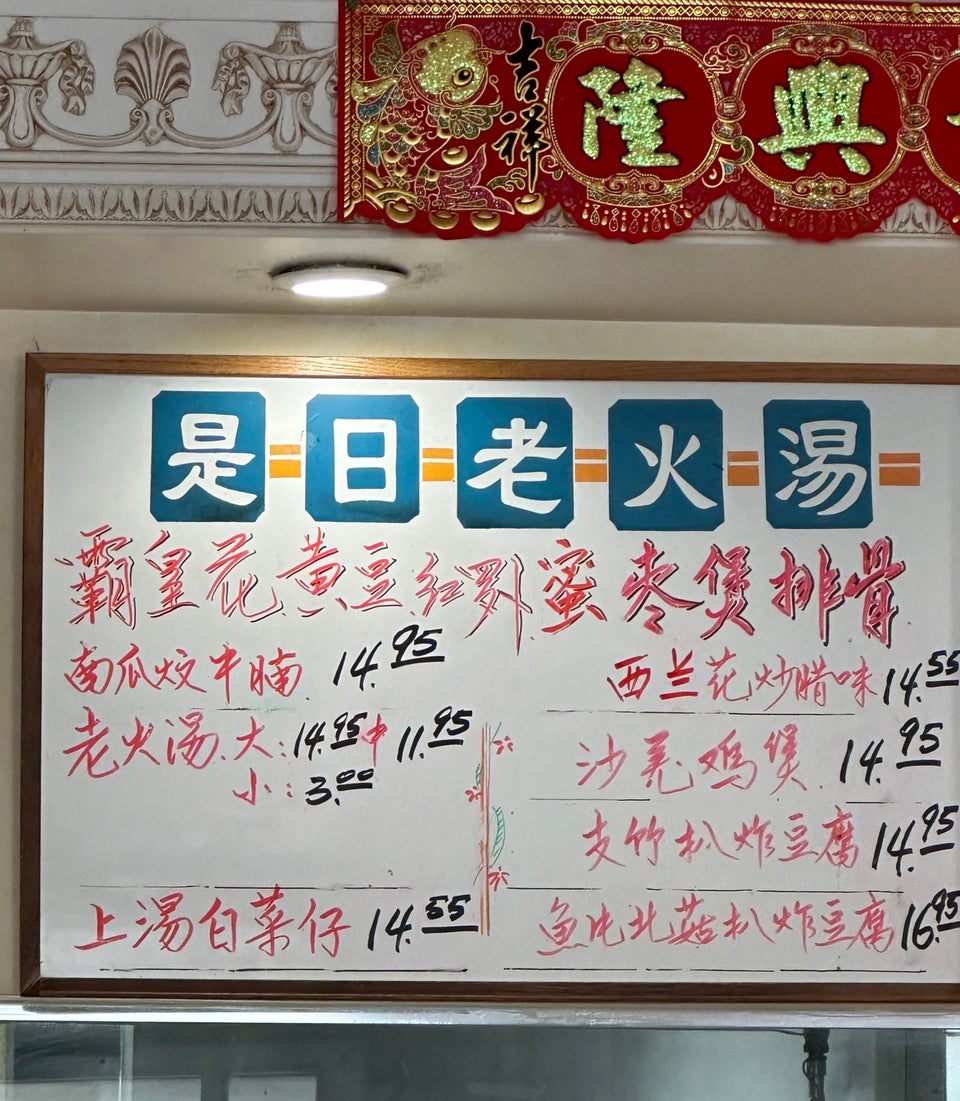 吉祥 隆 興
是日老火湯
霸皇花黄豆红萝卜蜜枣煲排骨
南瓜炆牛腩 14.95
西兰花炒腊味 14.55
老火汤.大:14.95 中 11.95
小:3.00
沙姜鸡煲 14.95
支竹扒炸豆腐 14.95
上湯白菜仔 14.55
鱼肚北菇扒炸豆腐 16.95